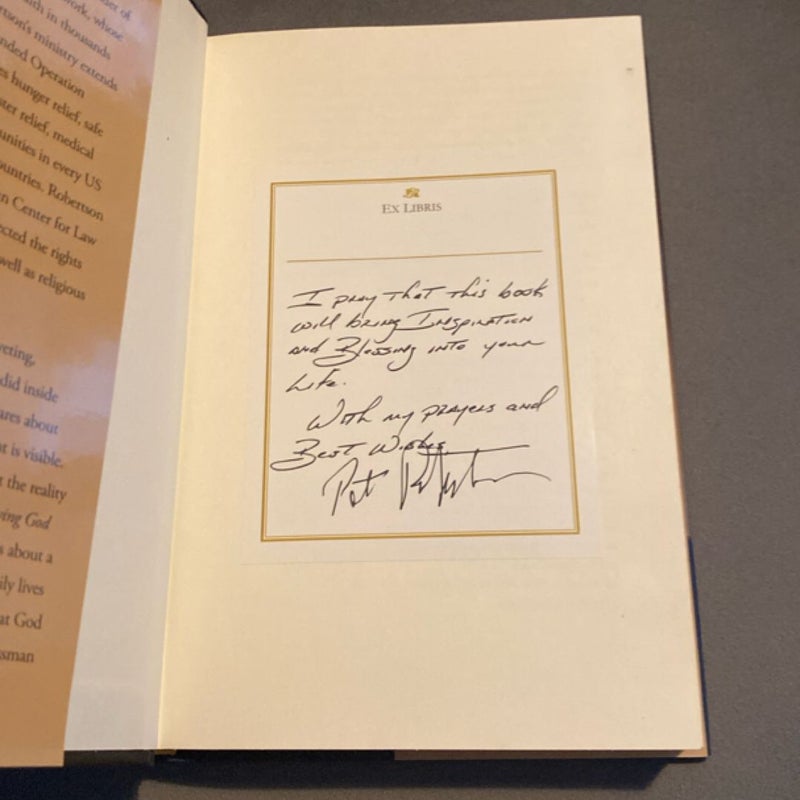 of
work, whose
in thousands
ministry extends
Operation
hunger relief, safe
relief, medical
in every US
Robertson
Center for Law
the rights
well as religious
did inside
about
is visible.
the reality
God
about a
lives
at God
EX LIBRIS
I pray that this book
will bring Inspiration
and Blessing into your
Life.
With my prayers and
Best Wishes
Pat Robertson